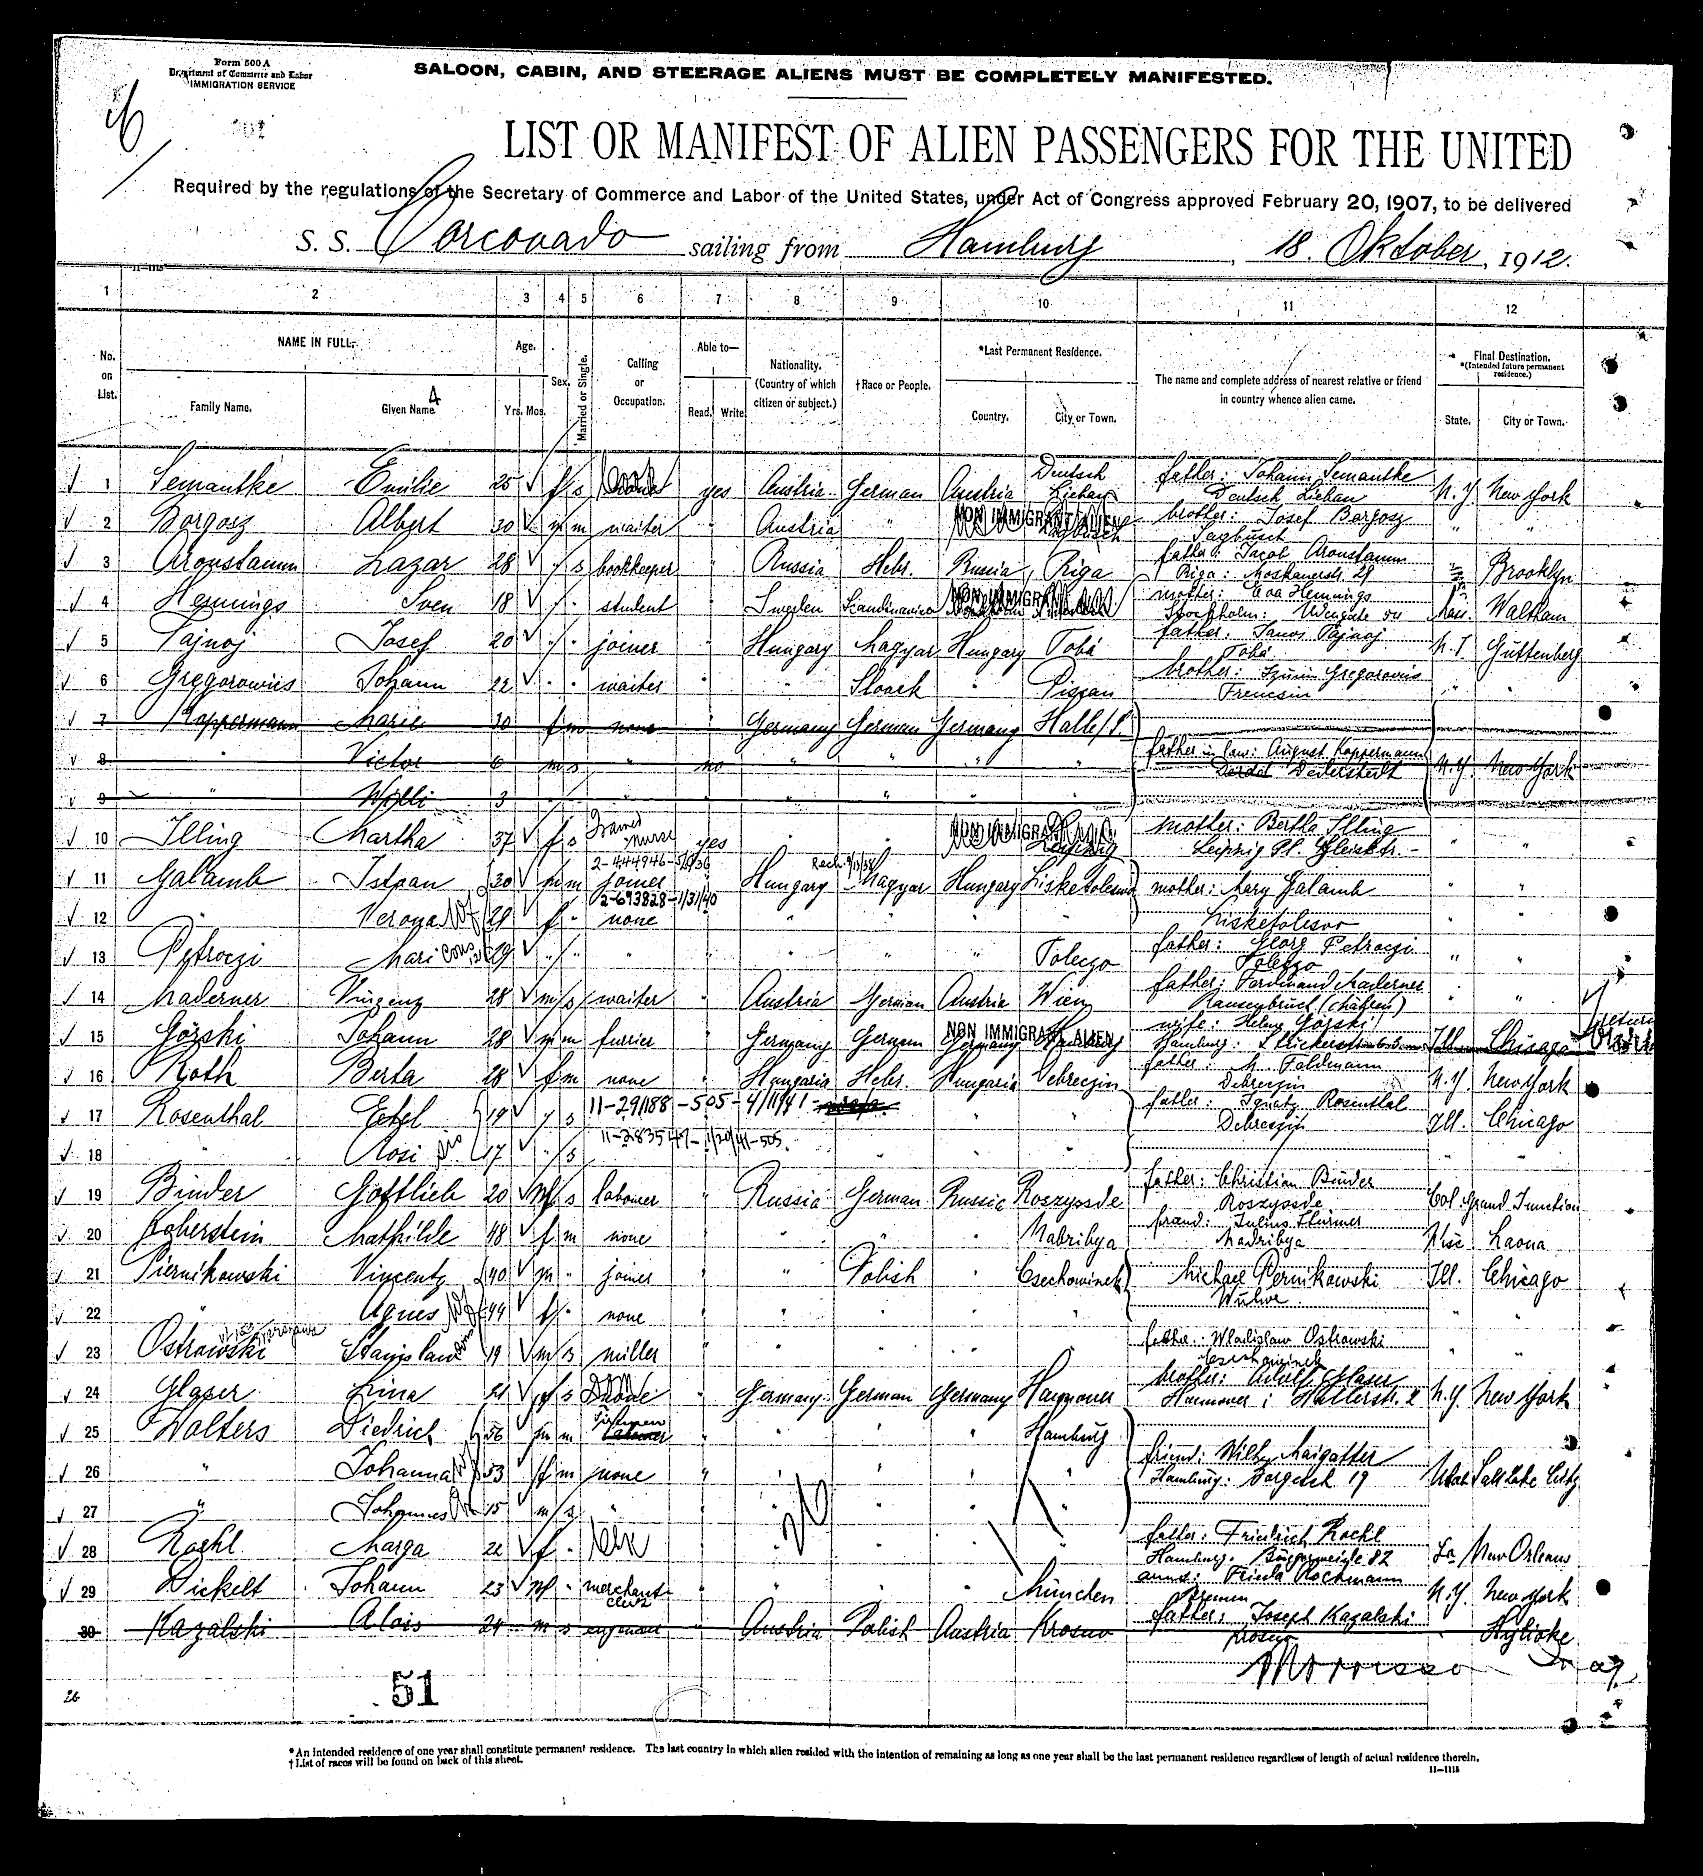 Form 500 A
Department of Commerce and Labor
IMMIGRATION SERVICE
SALOON, CABIN, AND STEERAGE ALIENS MUST BE COMPLETELY MANIFESTED.
LIST OR MANIFEST OF ALIEN PASSENGERS FOR THE UNITED
Required by the regulations of the Secretary of Commerce and Labor of the United States, under Act of Congress approved February 20, 1907, to be delivered
S. S. Corcovado sailing from Hamburg, 18. Oktober, 1912.
11-1115
1 2 3 4 5 6 7 8 9 10 11 12
No. on List. NAME IN FULL. Family Name. Given Name. 4 Age. Yrs. Mos. Sex. Married or Single. Calling or Occupation. Able to— Read. Write. Nationality. (Country of which citizen or subject.) †Race or People. *Last Permanent Residence. Country. City or Town. The name and complete address of nearest relative or friend in country whence alien came. *Final Destination. *(Intended future permanent residence.) State. City or Town.
1 Semantke Emilie 25 f s yes Austria German Austria Deutsch Liehau father: Johann Semantke Deutsch Liehau N.Y. New York
2 Borgosz Albert 30 m m waiter " Austria " NON IMMIGRANT ALIEN brother: Josef Borgosz Saybusch " "
3 Aronstamm Lazar 28 " s bookkeeper " Russia Hebr. Russia Riga father: Jacob Aronstamm Riga: Moskauerstr. 29 Brooklyn
4 Hennings Sven 18 " " student " Scandinavian NON IMMIGRANT ALIEN mother: Eva Hennings Stockholm: Mass. Waltham
5 Pajnoj Josef 20 " " joiner " Hungary Magyar Hungary Toba father: Janos Pajnoj Toba N.J. Guttenberg
6 Gregorowics Johann 22 " " waiter " " Slovak " Piszan brother: Gregorowics Trencsin " "
7 Koppermann Marie 30 f m none " Germany German Germany Halle/S.
8 " Victor 6 m s " no " " " " father in law: August Koppermann N.Y. New York
9 " Willi 3 " " "
10 Illing Martha 37 f s Trained nurse yes " " NON IMMIGRANT Leipzig mother: Bertha Illing Leipzig Pl. " "
2-444946-
11 Galamb Istvan 30 m m joiner " Hungary Magyar Hungary Lisketolesva mother: Mary Galamb " "
2-693828-1/31/40
12 " Verona 29 f " none " " " " " Lisketolesva " "
13 Petroczi Mari 29 " " " " " " " Tolczo father: Georg Petroczi Tolczo " "
14 Maderner Vinzenz 28 m s waiter " Austria German Austria Wien father: Ferdinand Maderner " "
15 Gorski Johann 28 m m furrier " Germany German Germany NON IMMIGRANT ALIEN wife: Helene Gorski Hamburg: Ill. Chicago
16 Roth Berta 28 f m none " Hungaria Hebr. Hungaria Debreczin father: M. Feldmann Debreczin N.Y. New York
17 Rosenthal Etel 19 " s 11-291188-505-4/11/41- " " father: Ignatz Rosenthal Debreczin Ill. Chicago
18 " Rosi 17 " s 11-283547- " "
19 Binder Gottlieb 20 m s laborer " Russia German Russia Roszyssde father: Christian Binder Roszyssde Col. Grand Junction
20 Koberstein Mathilde 48 f m none " " " " Madribya friend: Julius Stürmer Madribya Wisc. Laona
21 Piernikowski Vincenty 40 m " joiner " " Polish " Czechowinek Michael Piernikowski Ill. Chicago
22 " Agnes 44 f " none " " " " " " "
23 Ostrowski Stanislaw 19 m s miller " " " " " father: Wladislaw Ostrowski Czechowinek " "
24 Glaser Erna 21 f s " Germany German Germany Hannover brother: Adolf Glaser Hannover: Hallerstr. 2 N.Y. New York
25 Wolters Diedrich 56 m m laborer " " " " Hamburg
26 " Johanna 53 f m none " " " " " friend: Willy Maigatter Hamburg: Borgesch 19 Utah Salt Lake City
27 " Johannes 15 m s " " " " " "
28 Roehl Marga 22 f " " " " " " father: Friedrich Roehl Hamburg: Bürgerweide 82 La New Orleans
29 Dickelt Johann 23 m " merchant " " " " München aunt: Frieda Rockmann Bremen N.Y. New York
30 Kazalski Alois 24 m s engineer " Austria Polish Austria Krosno father: Joseph Kazalski Krosno " Holyoke
26
51
*An intended residence of one year shall constitute permanent residence. The last country in which alien resided with the intention of remaining as long as one year shall be the last permanent residence regardless of length of actual residence therein.
†List of races will be found on back of this sheet.
11-1115